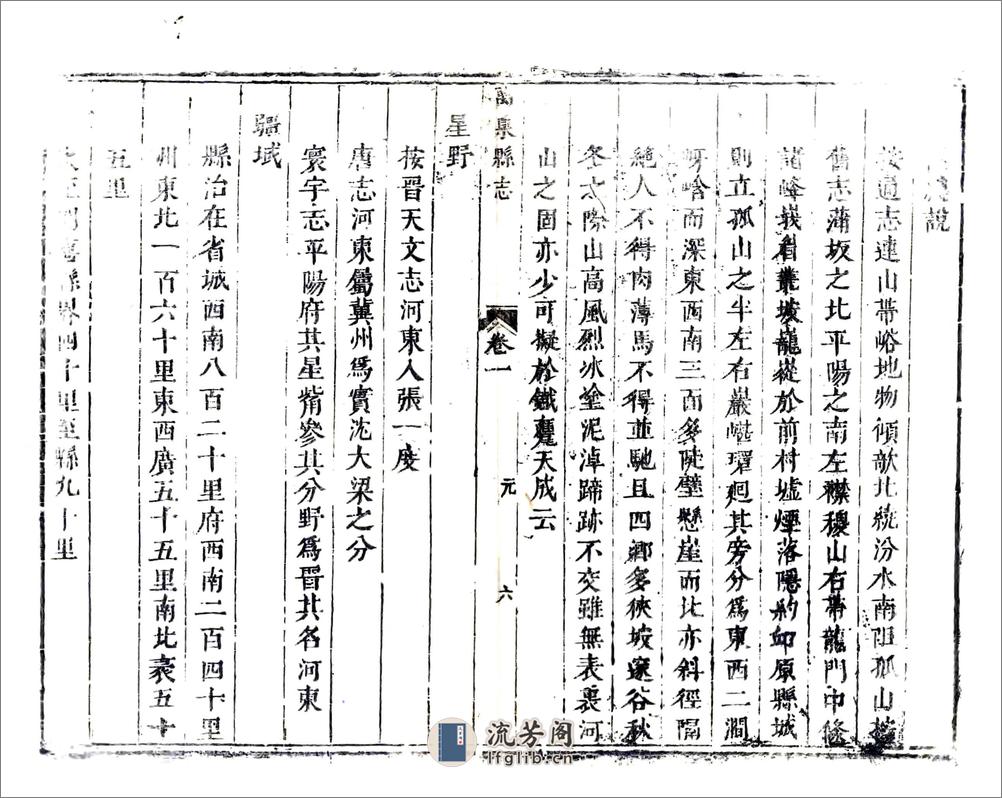 說
按通志連山帶峪地物傾欹北繞汾水南阻孤山按
舊志蒲坂之北平陽之南左襟稷山右帶龍門中條
諸峰峩眉叢坡巃嵷於前村墟煙落隱約卬原縣城
則立孤山之半左右巖巘環迴其旁分爲東西二澗
呀唅而深東西南三面多陡壁懸崖而北亦斜徑隔
絶人不得肉薄馬不得並馳且四鄉多狹坡邃谷秋
冬之際山高風烈冰塗泥淖蹄跡不交雖無表裏河
山之固亦少可擬於鐵甕天成云
萬泉縣志
卷一
元
六
星野
按晉天文志河東人張一度
唐志河東屬冀州爲實沈大梁之分
寰宇志平陽府其星觜參其分野爲晉其名河東
疆域
縣治在省城西南八百二十里府西南二百四十里
州東北一百六十里東西廣五十五里南北袤五十
五里
東至聞喜縣界四十里至縣九十里
流芳阁
lfglib.cn